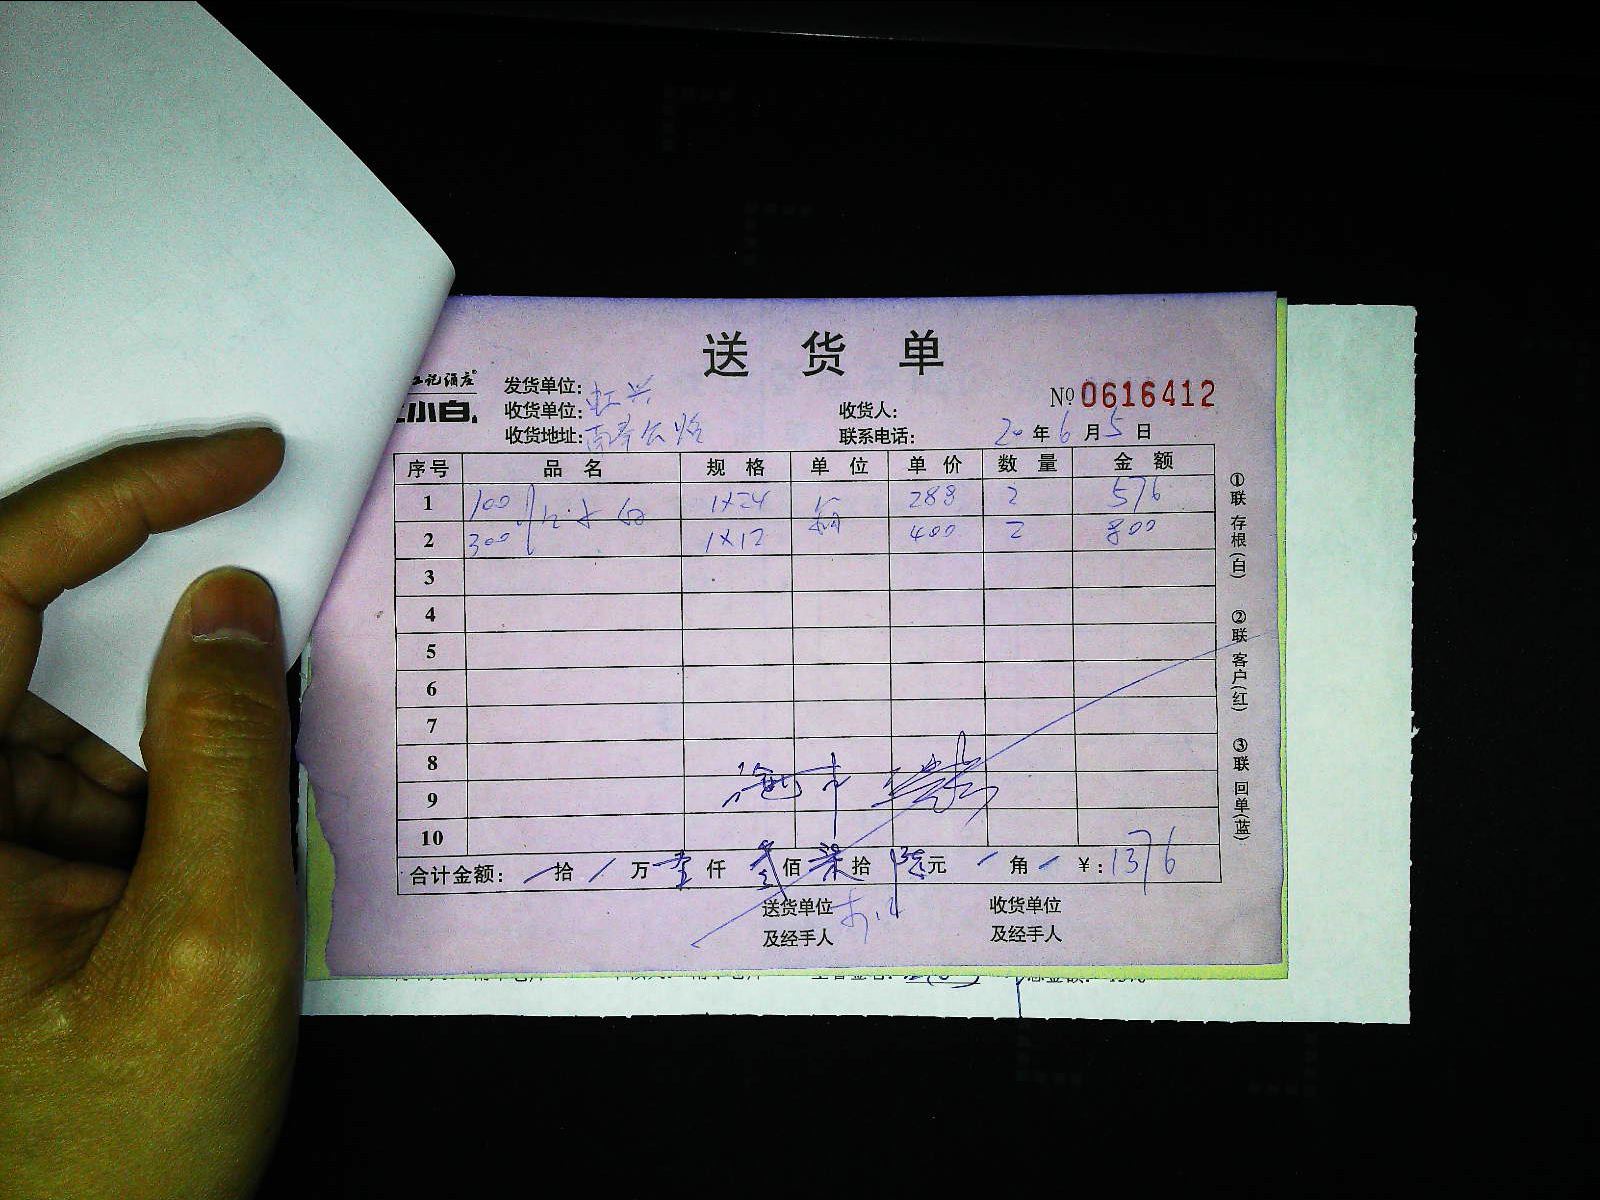 送货单
记酒庄
小白
发货单位:
收货单位: 虹兴
收货人:
№ 0616412
收货地址:
联系电话:
20年6月5日
序号 品名 规格 单位 单价 数量 金额
1 100 江小白 1×24 箱 288 2 576
2 300 1×12 400 2 800
3
4
5
6
7
8
9
10
合计金额: 拾 万 壹仟 叁佰 柒拾 陆元 角 ¥: 1376
送货单位 收货单位
及经手人 及经手人
①联 存根(白) ②联 客户(红) ③联 回单(蓝)